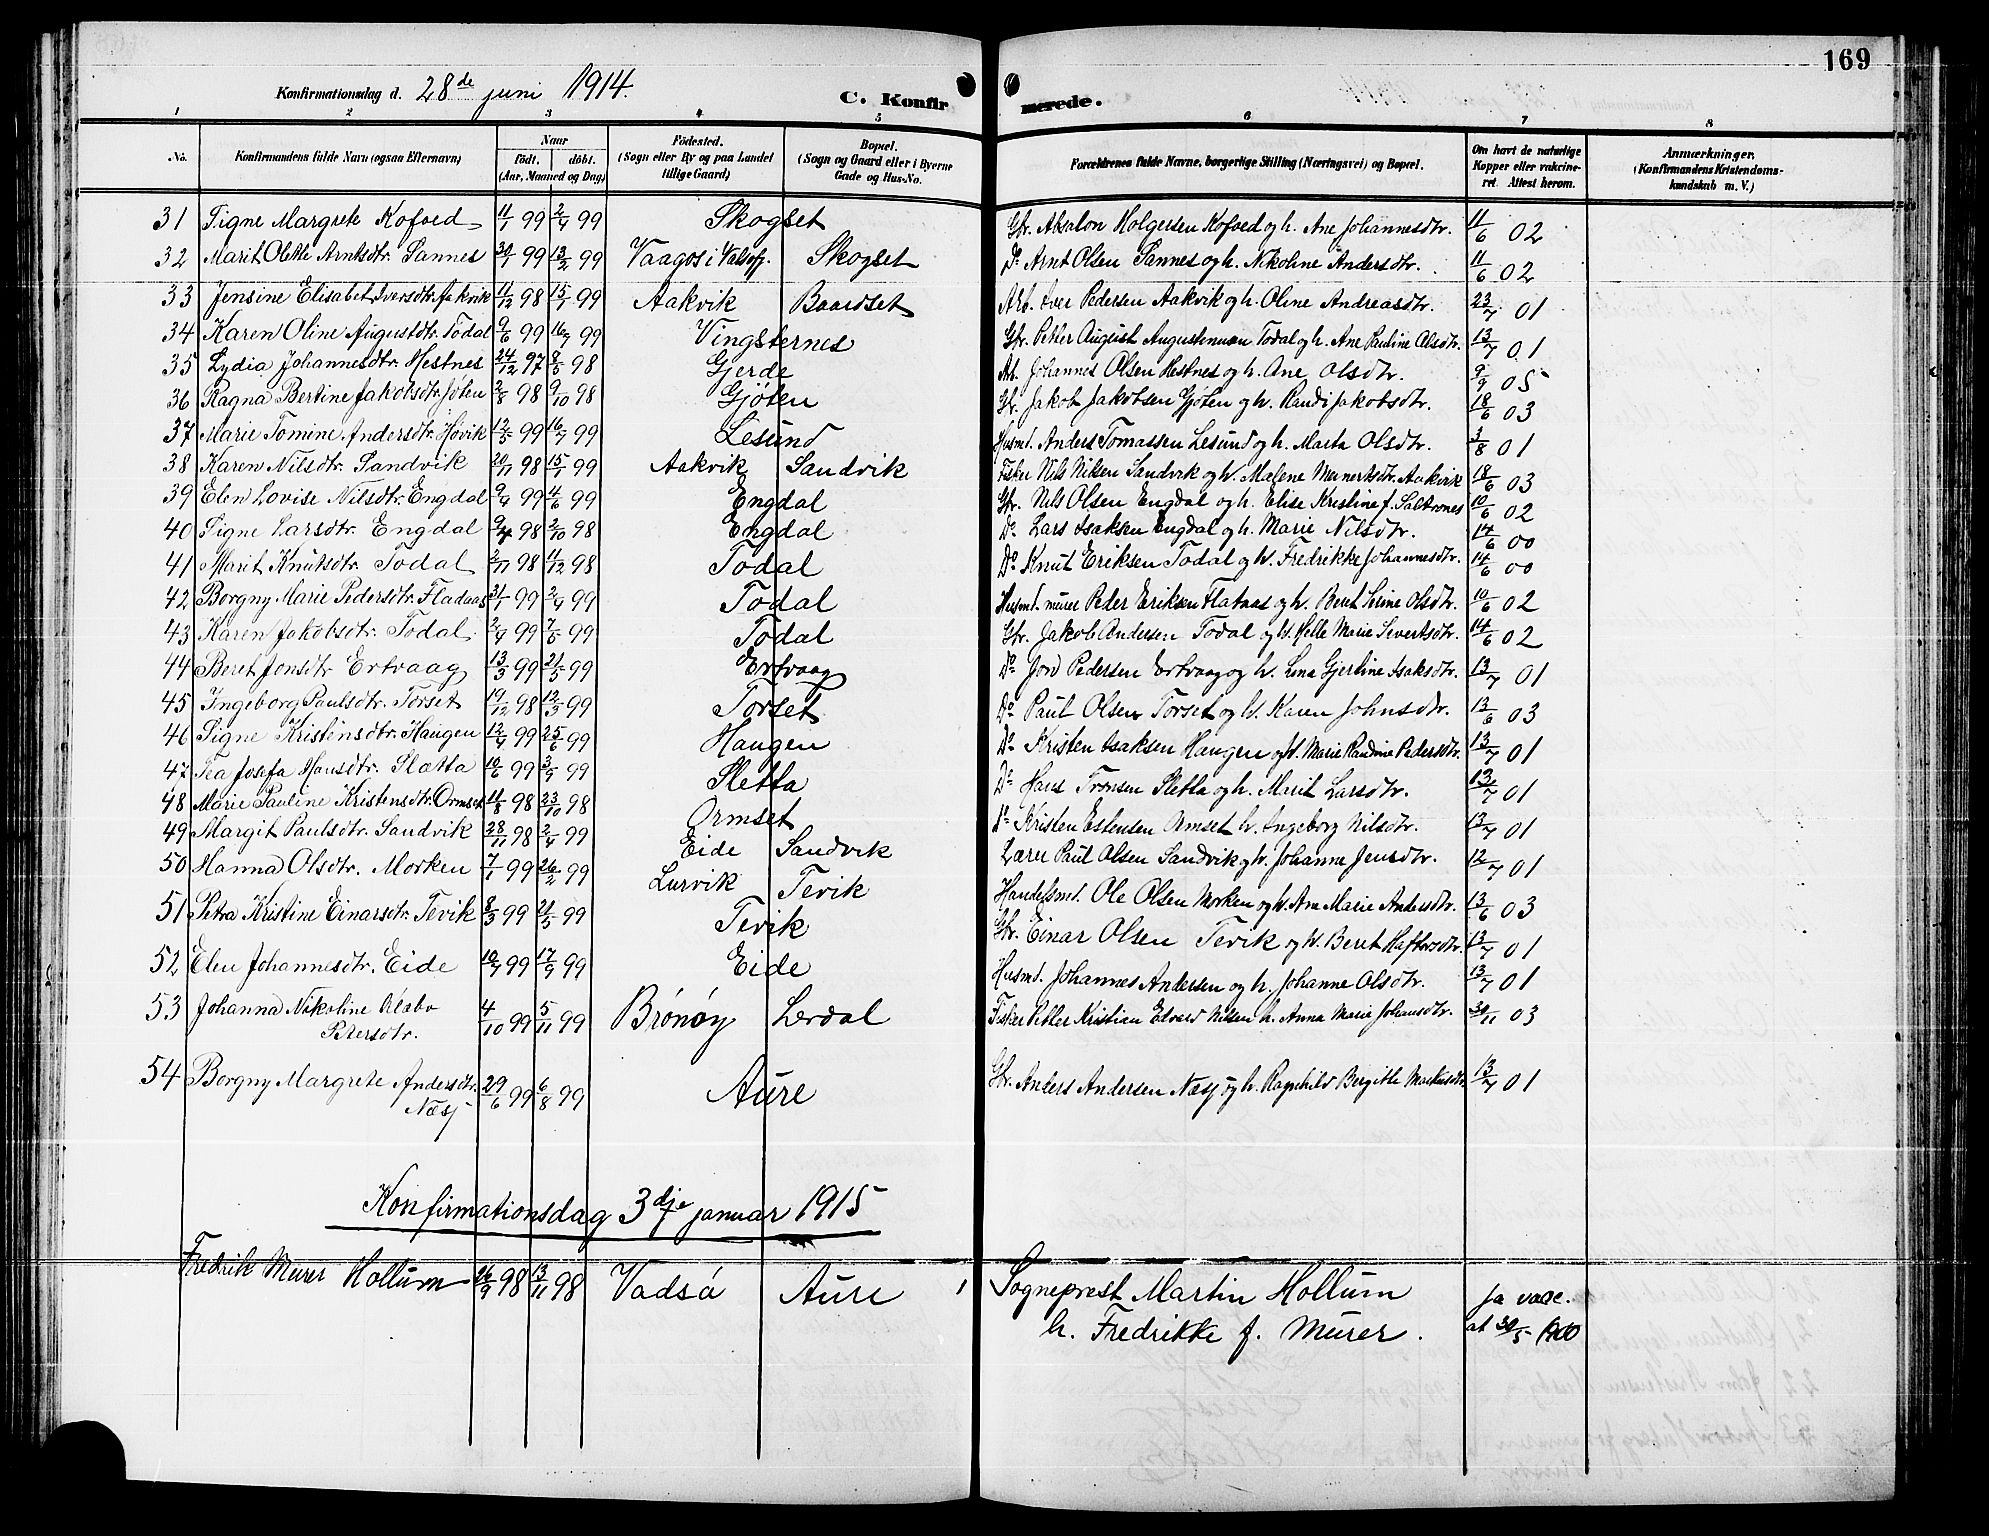 169
Konfirmationsdag d. 28de juni 1914.
C. Konfirmerede.
1 2 3 4 5 6 7 8
No. Konfirmandens fulde Navn (ogsaa Efternavn) Naar født. døbt. (Aar, Maaned og Dag) Fødested. (Sogn eller By og paa Landet tillige Gaard) Bopæl. (Sogn og Gaard eller i Byerne Gade og Hus-No. Forældrenes fulde Navne, borgerlige Stilling (Næringsvei) og Bopæl. Om havt de naturlige Kopper eller vakcineret. Attest herom. Anmærkninger. (Konfirmandens Kristendomskundskab m. V.)
31 Signe Margrete Kofoed 11/1 99 2/4 99 Skogset Gbr. Absalon Holgersen Kofoed og h. Ane Johannesdtr. 11/6 02
32 Marit Olette Arntsdtr. Sannes 30/1 99 13/2 99 Vaagos i Valsøf. Skogset Do Arnt Olsen Sannes og h. Nikoline Andersdtr. 11/6 02
33 Jensine Elisabet Iversdtr. Aakvik 11/12 98 15/1 99 Aakvik Baardset Arb. Iver Pedersen Aakvik og h. Oline Andreasdtr. 23/7 01
34 Karen Oline Augustdtr. Todal 9/6 99 16/7 99 Vingsternes Gbr. Petter August Augustinusen Todal og h. Ane Pauline Olsdtr. 13/7 01
35 Lydia Johannesdtr. Hestnes 24/12 97 8/5 98 Gjerde Arb. Johannes Olsen Hestnes og h. Ane Olsdtr. 9/9 05
36 Ragna Bertine Jakobsdtr. Jøten 2/8 98 9/10 98 Gjøten Gbr. Jakob Jakobsen Gjøten og h. Randi Jakobsdtr. 18/6 03
37 Marie Tomine Andersdtr. Høvik 12/5 99 16/7 99 Lesund Husmd. Anders Tomassen Lesund og h. Marta Olsdtr. 3/8 01
38 Karen Nilsdtr. Sandvik 20/11 98 15/1 99 Aakvik Sandvik Fisker Nils Nilsen Sandvik og h. Malene Meinertsdtr. Aakvik 18/6 03
39 Elen Lovise Nilsdtr. Engdal 9/4 99 4/6 99 Engdal Gbr. Nils Olsen Engdal og h. Elise Kristine f. Saltrønes 10/6 02
40 Signe Larsdtr. Engdal 9/4 98 2/10 98 Engdal Do Lars Isaksen Engdal og h. Marie Nilsdtr. 14/6 00
41 Marit Knutsdtr. Todal 2/11 98 11/12 98 Todal Do Knut Eriksen Todal og h. Fredrikke Johannesdtr. 14/6 00
42 Borgny Marie Pedersdtr. Fladaas 31/1 99 2/4 99 Todal Husmd. murer Peder Eriksen Flataas og h. Beret Serine Olsdtr. 10/6 02
43 Karen Jakobsdtr. Todal 2/4 99 7/5 99 Todal Gbr. Jakob Andersen Todal og h. Helle Marie Sivertsdtr. 14/6 02
44 Beret Jonsdtr. Ertvaag 13/3 99 21/5 99 Ertvaag Do Jon Pedersen Ertvaag og h. Lina Gjertine Isaksdtr. 13/7 01
45 Ingeborg Paulsdtr. Torset 19/12 98 12/3 99 Torset Do Paul Olsen Torset og h. Karen Johnsdtr. 13/6 03
46 Signe Kristensdtr. Haugen 12/4 99 25/6 99 Haugen Do Kristen Isaksen Haugen og h. Marie Randine Pedersdtr. 13/7 01
47 Tea Josefa Hansdtr. Sletta 10/6 99 3/9 99 Sletta Do Hans Trønsen Sletta og h. Marit Larsdtr. 13/7 01
48 Marie Pauline Kristensdtr. Ormset 11/8 98 23/10 98 Ormset Do Kristen Estensen Ormset h. Ingeborg Nilsdtr. 13/7 01
49 Margit Paulsdtr. Sandvik 28/11 98 2/4 99 Eide Sandvik Lærer Paul Olsen Sandvik og h. Johanne Jensdtr. 12/7 01
50 Hanna Olsdtr. Morken 7/1 99 26/2 99 Lurvik Tevik Handelsmd. Ole Olsen Morken og h. Ane Marie Andersdtr. 13/6 03
51 Petra Kristine Einarsdtr. Tevik 8/3 99 21/5 99 Tevik Gbr. Einar Olsen Tevik og h. Beret Haftorsdtr. 13/7 01
52 Elen Johannesdtr. Eide 10/7 99 17/9 99 Eide Husmd. Johannes Andersen og h. Johanne Olsdtr. 13/7 01
53 Johanna Nikoline
Petersdtr. 4/10 99 5/11 99 Brønøy Lerdal Fisker Petter Kristian Edvard Nilsen h. Anna Marie Johansdtr. 30/11 03
54 Borgny Margrete Andersdtr.
Næsj 29/6 99 6/8 99 Aure Gbr. Anders Andersen Næsj og h. Ragnhild Bergitte Markusdtr. 13/7 01
Konfirmationsdag 3dje januar 1915
Fredrik Meier Hollum 26/9 98 13/11 98 Vadsø Aure 1 Sogneprest Martin Hollum Ja vacc.
h. Fredrikke f. Meier. at 30/5 1900